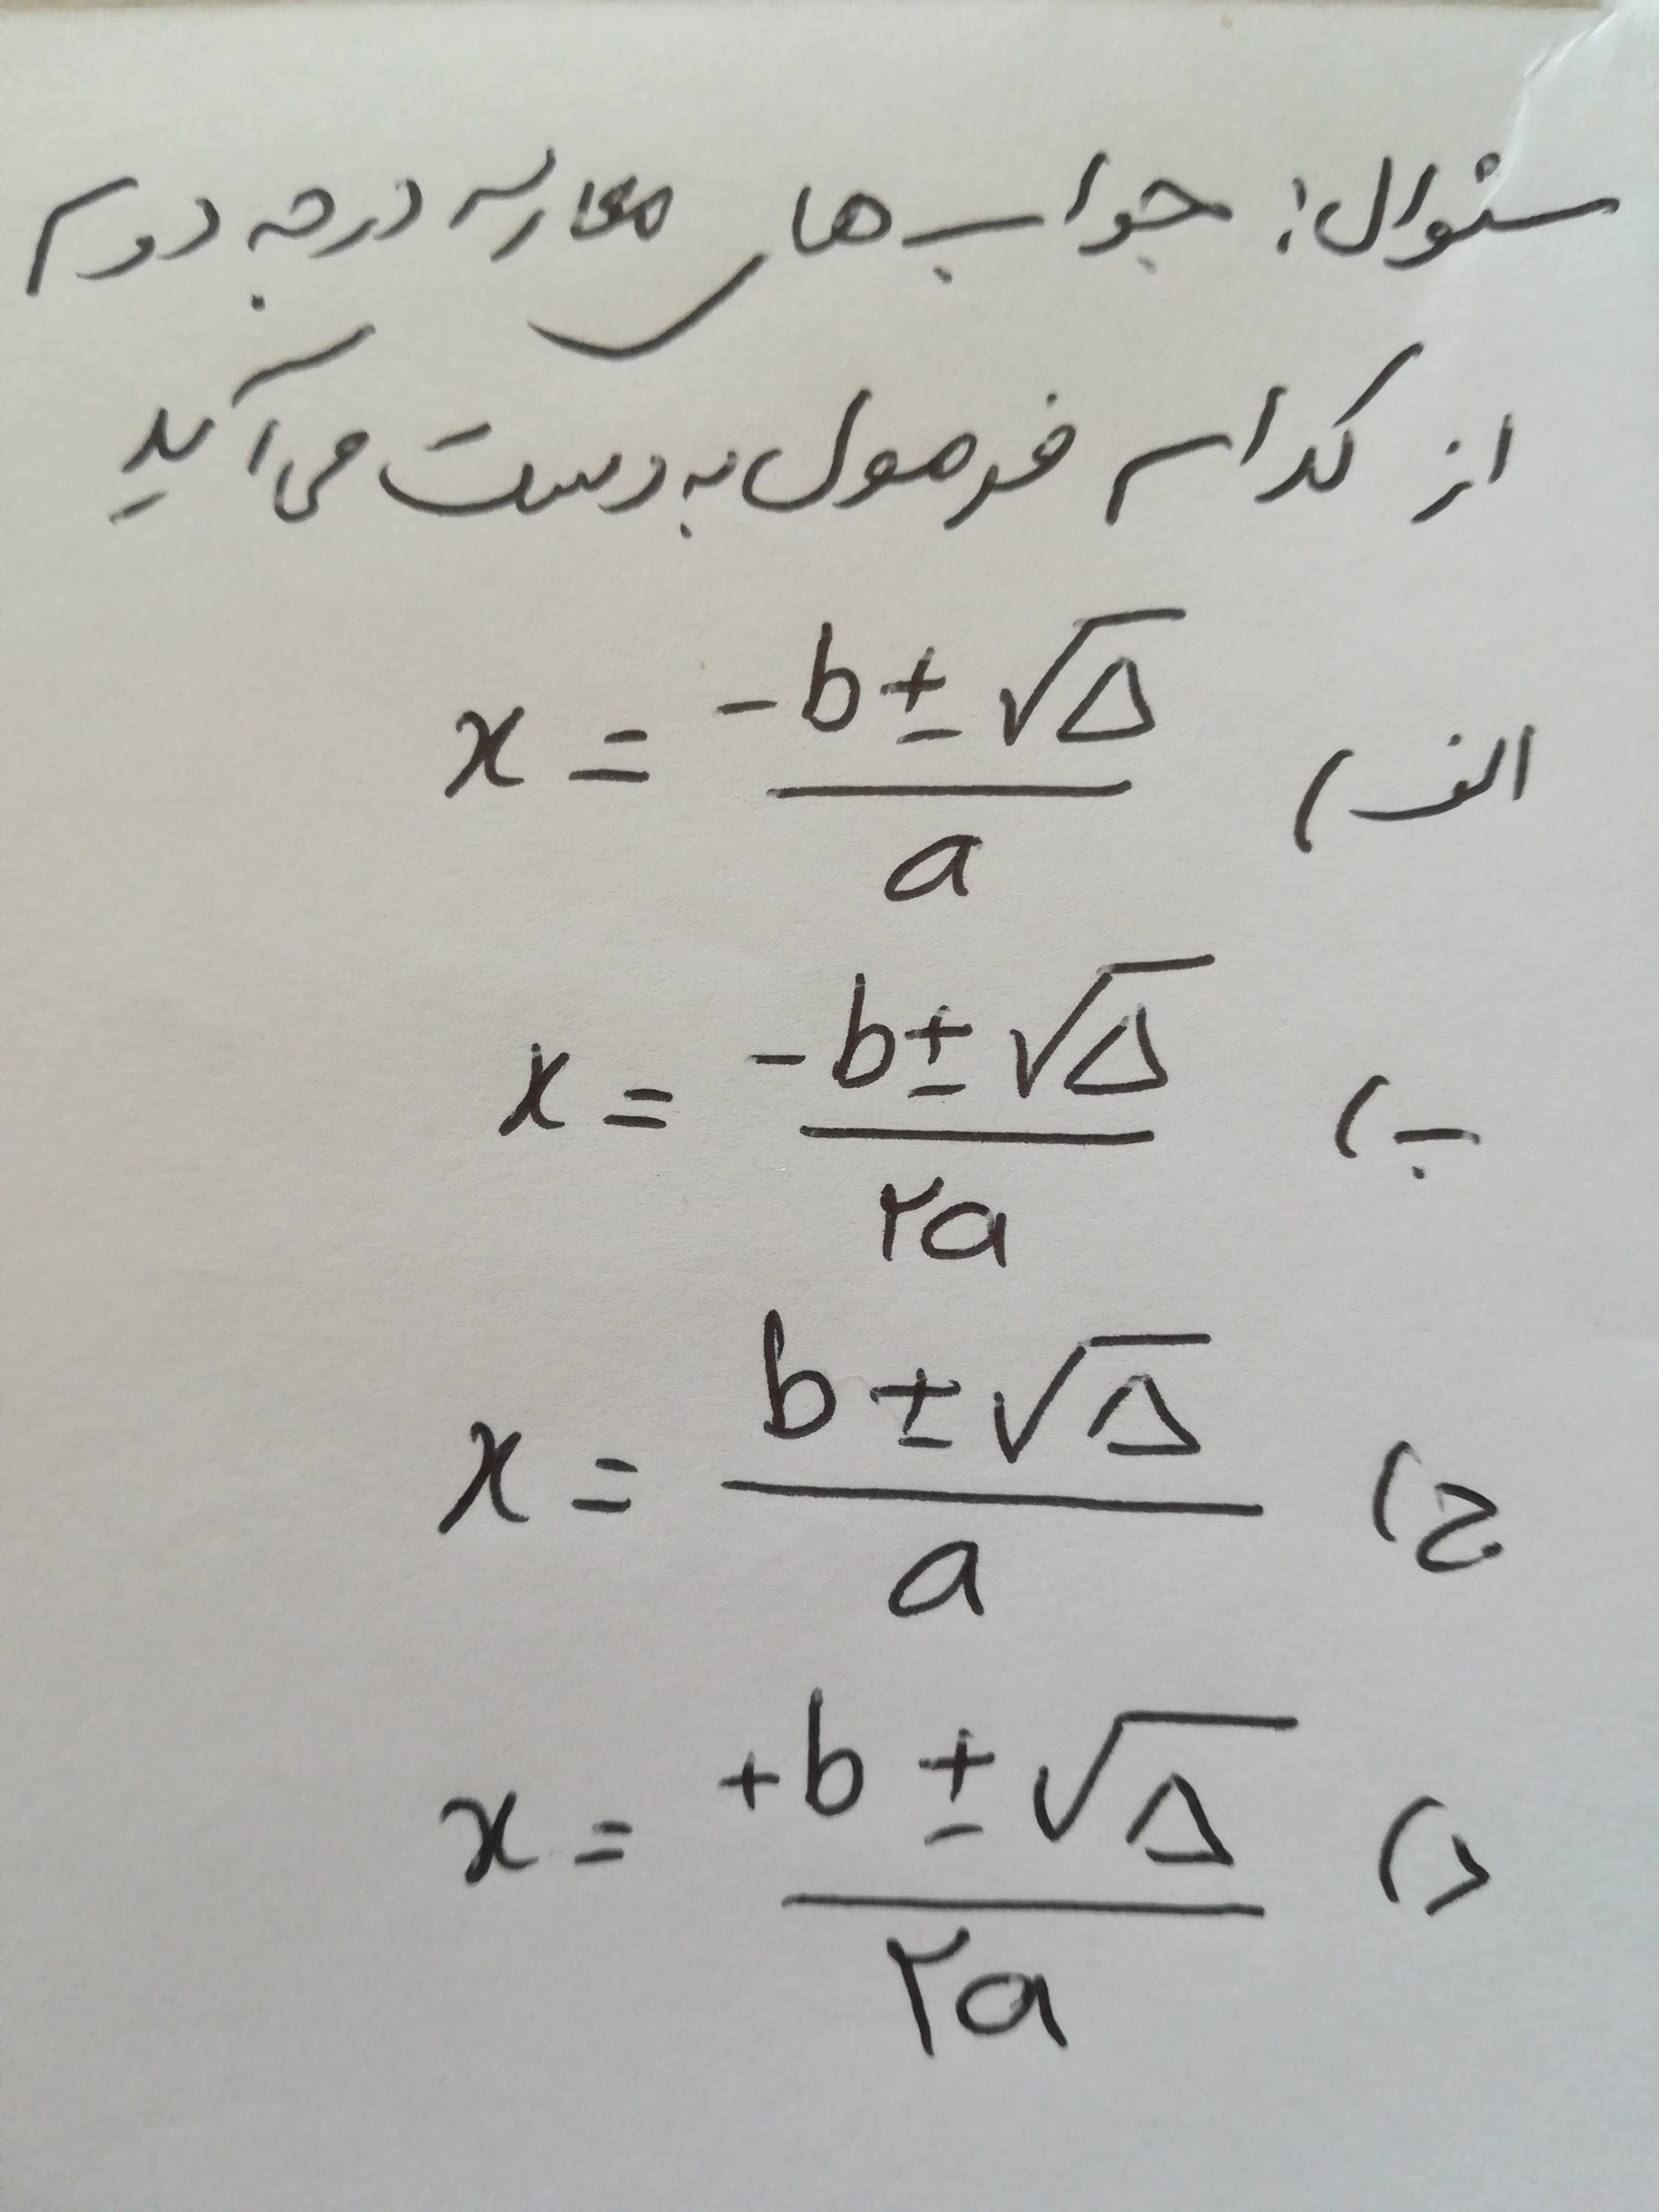 سئوال: جواب های معادله درجه دوم
از کدام فرمول به دست می آید
الف) x = (-b ± √Δ) / a
ب) x = (-b ± √Δ) / ۲a
ج) x = (b ± √Δ) / a
د) x = (+b ± √Δ) / ۲a